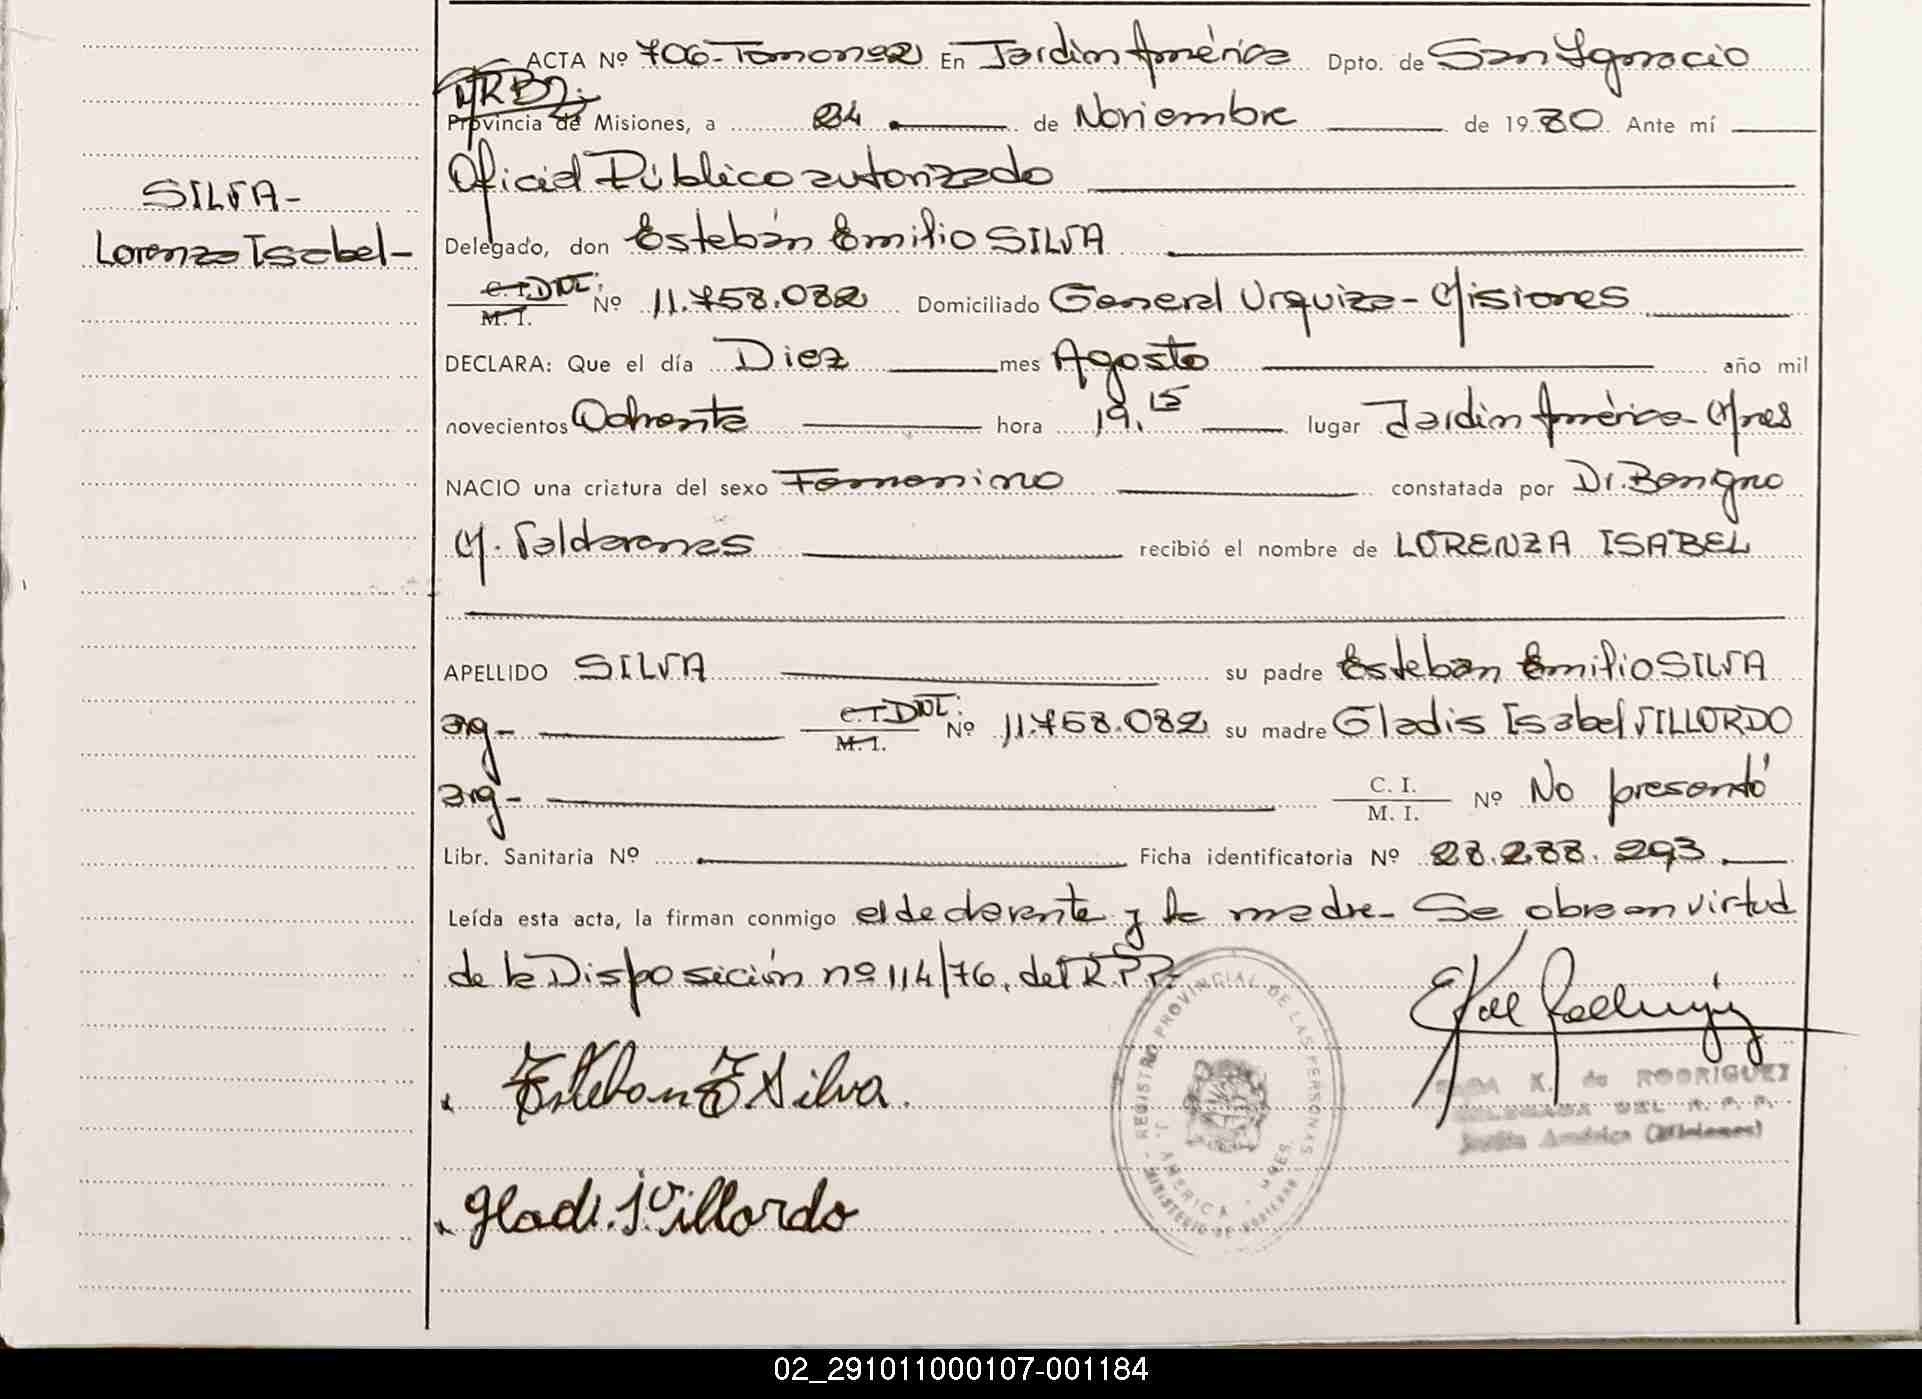 SILVA-
Lorenza Isabel-
ACTA Nº 706- Tomo nº2 En Jardín América Dpto. de San Ignacio
Provincia de Misiones, a 24 de Noviembre de 1980 Ante mí
Oficial Público autorizado
Delegado, don Estebán Emilio SILVA
C.I. DNI: M.I. Nº 11.758.082 Domiciliado General Urquiza - Misiones
DECLARA: Que el día Diez mes Agosto año mil
novecientos Ochenta hora 19.15 lugar Jardín América- Mnes
NACIO una criatura del sexo Femenino constatada por Dr. Benigno
M. Valdarenas recibió el nombre de LORENZA ISABEL
APELLIDO SILVA su padre Esteban Emilio SILVA
arg- C.I. DNI: M.I. Nº 11.758.082 su madre Gladis Isabel VILLORDO
arg- C. I. M. I. Nº No presentó
Libr. Sanitaria Nº Ficha identificatoria Nº 28.288.293
Leída esta acta, la firman conmigo el declarante y la madre- Se labra en virtud
de la Disposición nº 114/76, del R.P.P-
REGISTRO PROVINCIAL DE LAS PERSONAS
J. AMERICA - MNES.
MINISTERIO DE GOBIERNO
K. de RODRIGUEZ
DELEGADA DEL R. P. P.
Jardín América (Misiones)
Esteban E Silva.
Gladi. I. Villordo
02_291011000107-001184